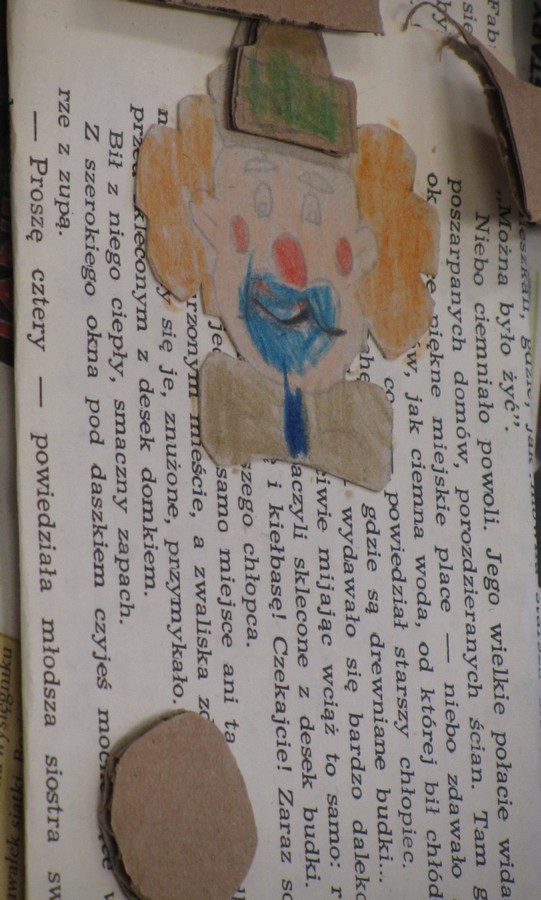 „Można było żyć”.
Niebo ciemniało powoli. Jego wielkie połacie wida
poszarpanych domów, porozdzieranych ścian. Tam g
piękne miejskie place — niebo zdawało
jak ciemna woda, od której bił chłód
co — powiedział starszy chłopiec.
gdzie są drewniane budki...
wydawało się bardzo daleko
mijając wciąż to samo: r
sklecone z desek budki.
i kiełbasę! Czekajcie! Zaraz so
szego chłopca.
samo miejsce ani ta
rzonym mieście, a zwaliska
się je, znużone, przymykało.
kleconym z desek domkiem.
Bił z niego ciepły, smaczny zapach.
Z szerokiego okna pod daszkiem czyjeś
rze z zupą.
— Proszę cztery — powiedziała młodsza siostra sw